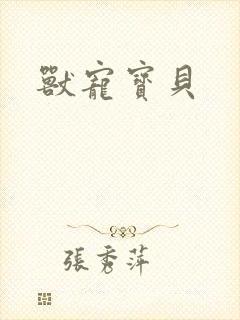 獸寵寶貝
張秀萍